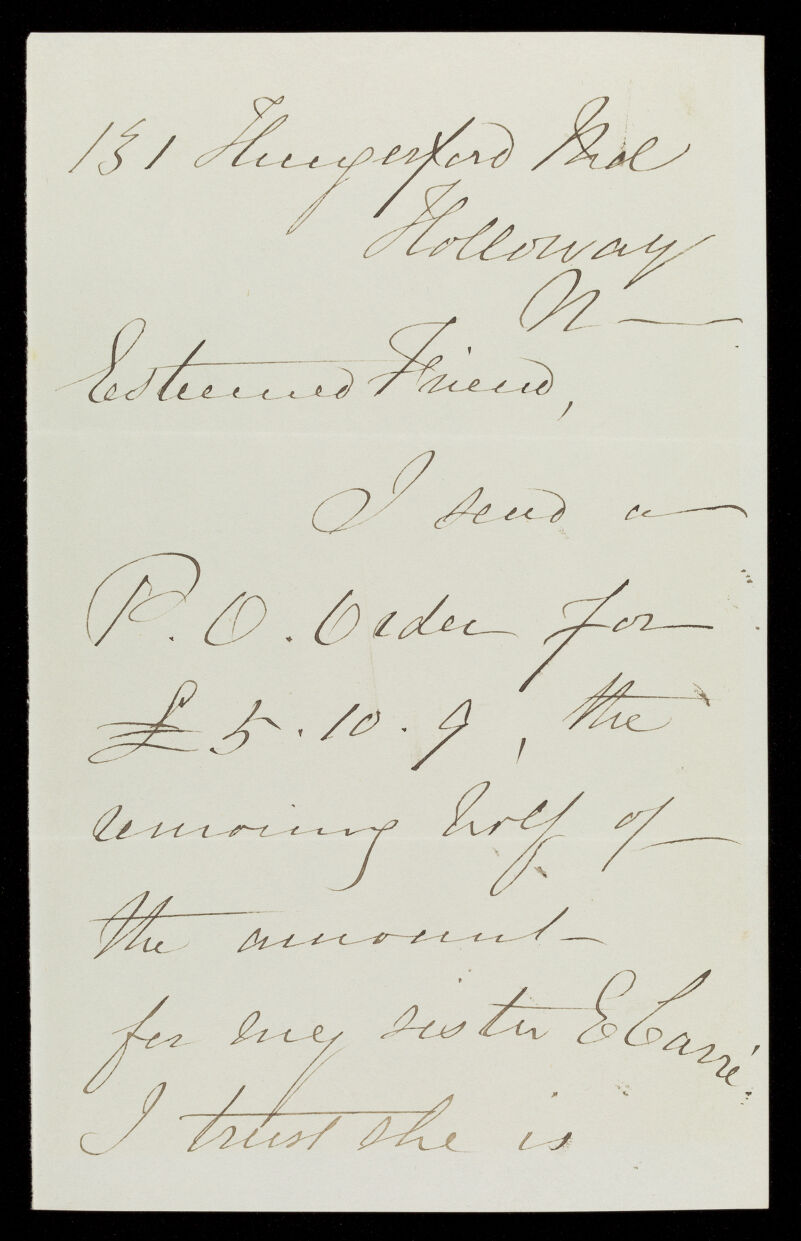 131 Hungerford Rd
Holloway
N
Esteemed Friend,
I send a
P. O. Order for
£5.10.9, the
remaining half of
the amount
for my sister E Carré.
I trust she is